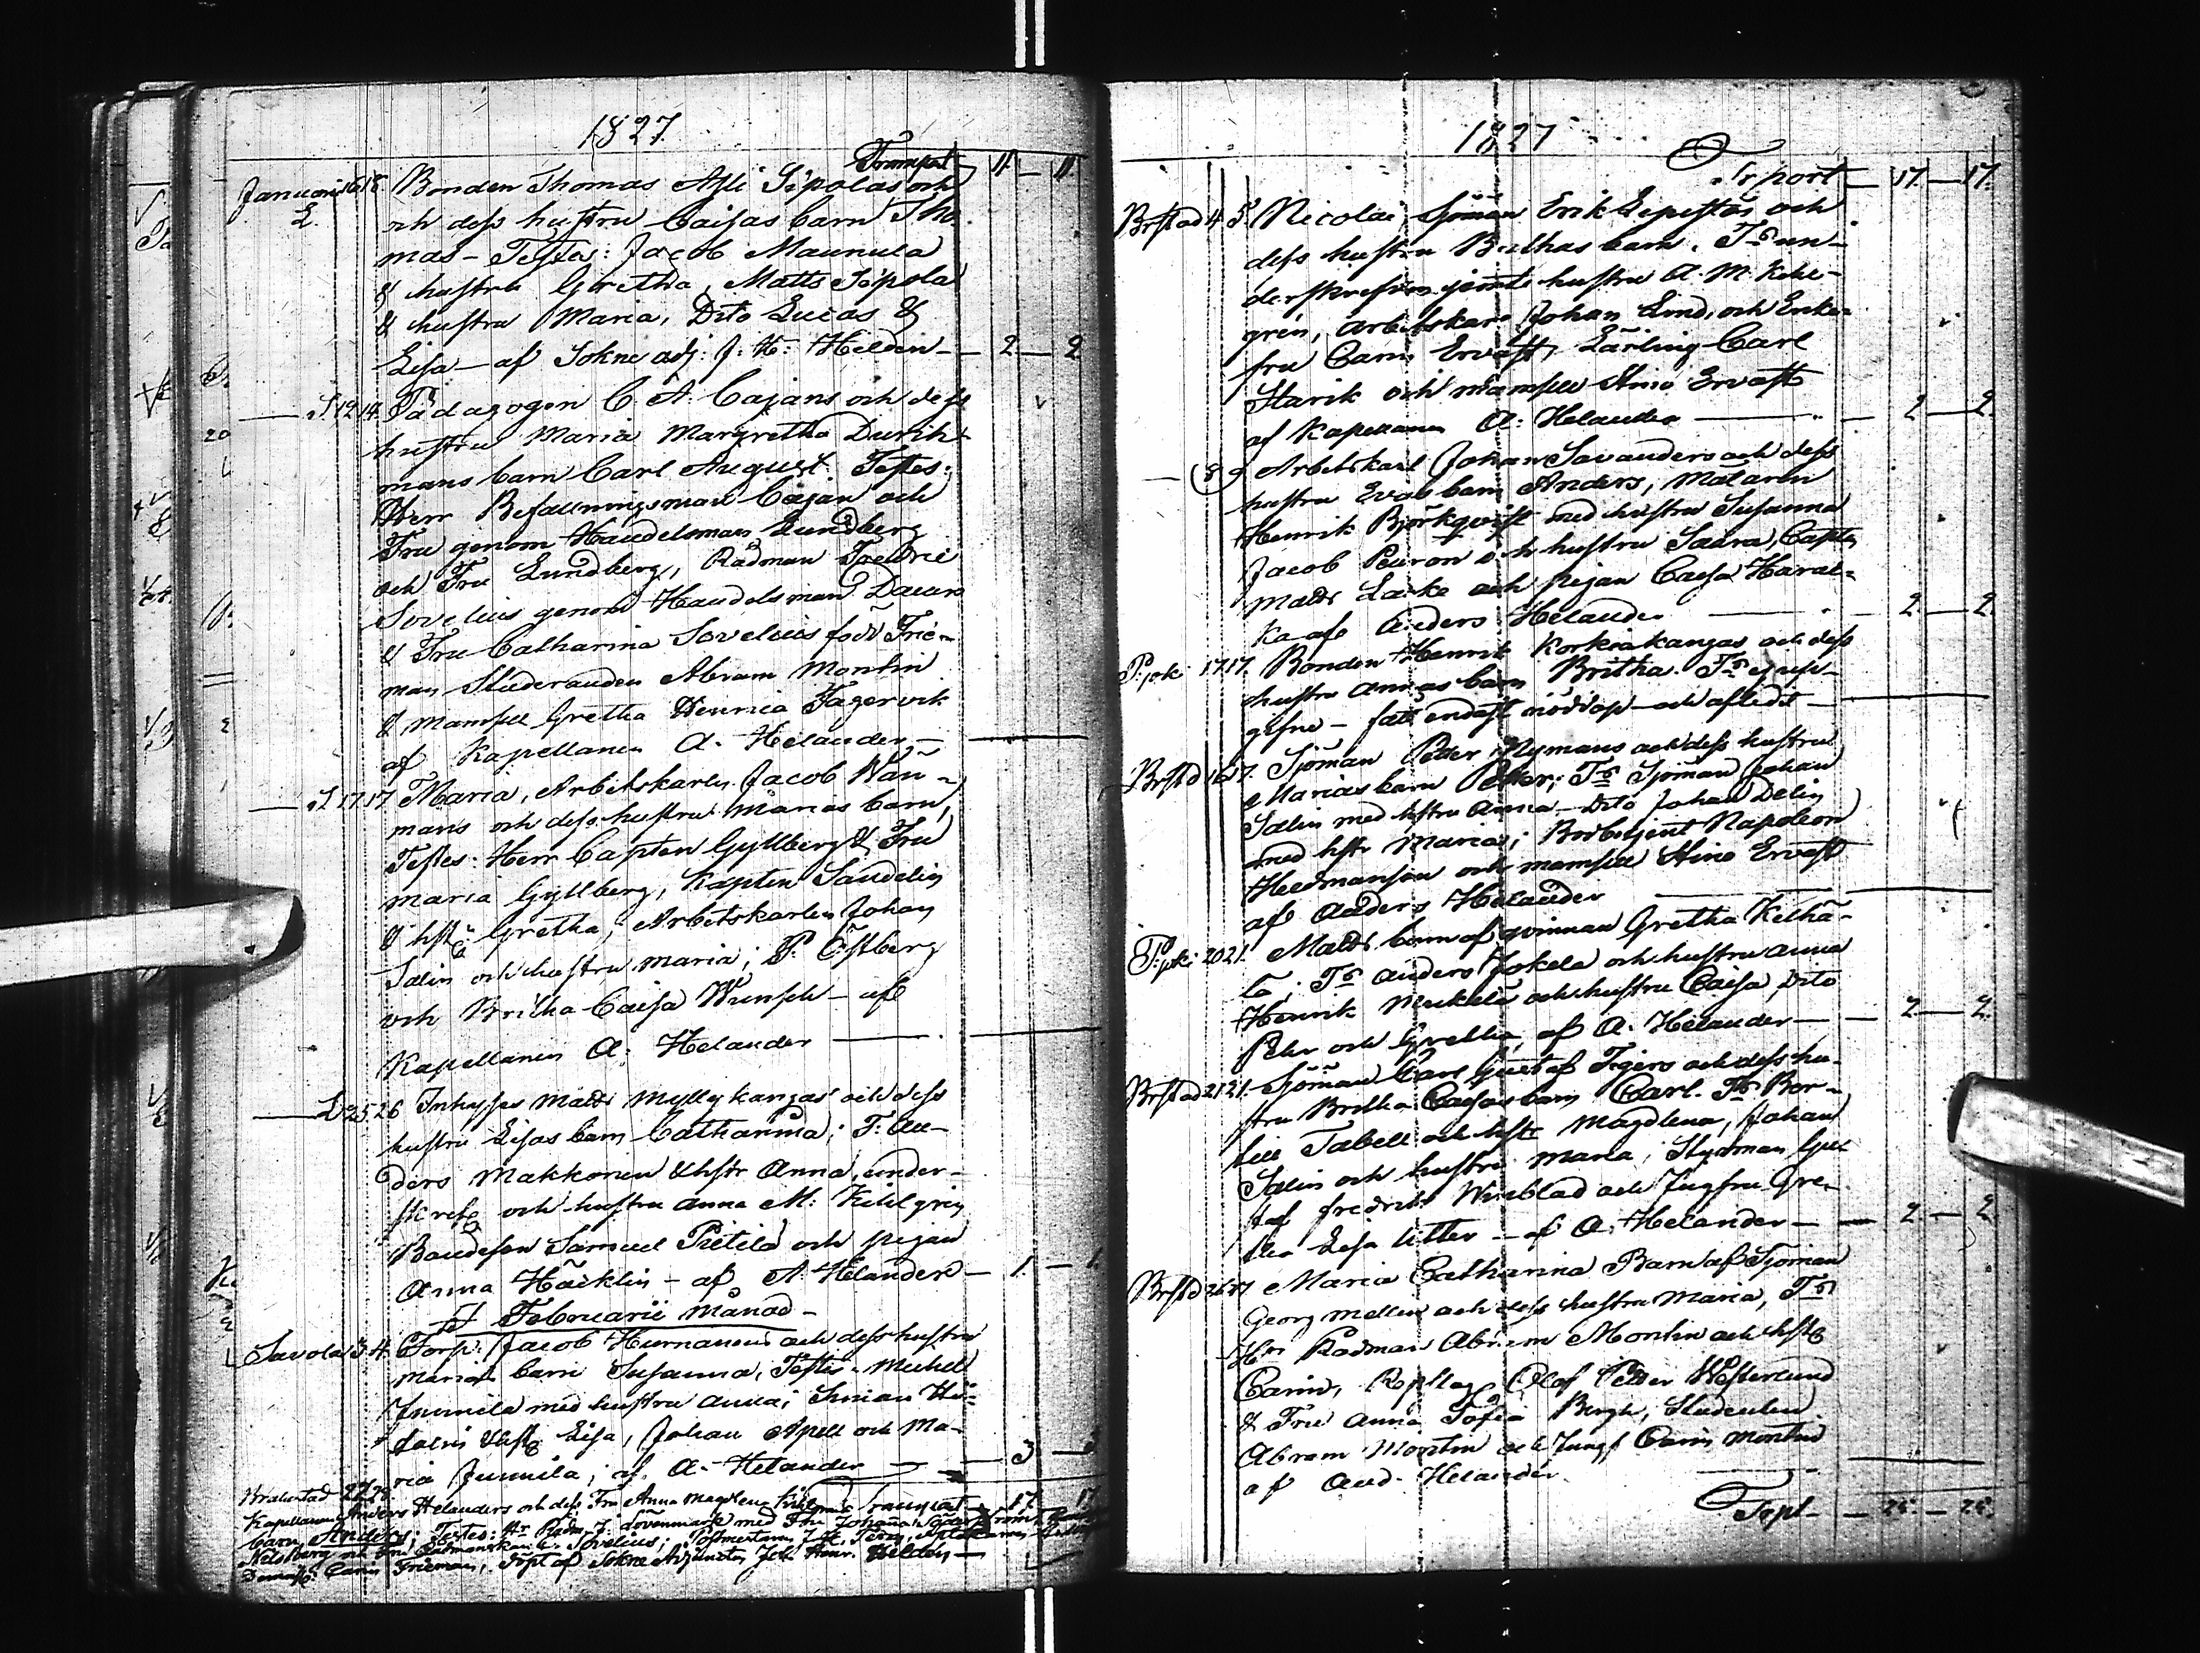 1827
Transport 11 – 11
Januarii 16 18. Bonden Thomas Sipolas och
L. och dess hustru Caisas barn Tho-
mas – Testes: Jacob Maunula
& hustru Gretha, Matts Sipola
& hustru Maria, Dito Lucas &
Lisa – af Sokne adj: J: H: Heldén – 2 – 2
Pädagogen C. A. Cajans och dess
hustru Maria Margretha Durck-
mans barn Carl August. Testes:
Herr Befallningsman Cajan och
Fru genom Handelsman Lundberg
och Fru Lundberg, Rådman Fredric
Sovelius genom Handelsman
& Fru Catharina Sovelius född Frie-
man Studeranden Abram Montin
& Mamsell Gretha Henrica Fagervik
af Kapellanen A. Helander –
17 17 Maria, Arbetskarlen Jacob
mans och dess hustru Marias barn,
Testes: Herr Capten Gyllberg & Fru
Maria Gyllberg, Kapten Sandelin
& hstr Gretha, Arbetskarlen Johan
Salin och hustru Maria; P. Östberg
och Britha Caisa Wunsch – af
Kapellanen A: Helander
25 26 Inhyses Matts Myllykangas och dess
hustru Lisas barn Catharina; T: An-
ders Makkonen & hstr Anna, under-
skrefn och hustru Anna M: Kihlgrén
Bondeson Samuel Pietilä och pigan
Anna Häcklin – af A. Helander – 1. – 1.
Februarii månad –
Savola 3 4. Torp: Jacob Hurnanens och dess hustru
Marias barn Susanna, Testes: Michell
Junnila med hustru Anna; Simon
& hstr Lisa, Johan Apell och Ma-
ria Junnila; af A. Helander – 3 –
Brahestad 27 28. Transport – 17. 17
Kapellanen Anders Helanders och dess Fru Anna Magdlena
barn Anders; Testes: Hr Rådm. J: Lövenmark med Fru Johanna
och Fru Sovelius; Postmästaren
Carin Frieman, Döpt af Sokne Adjuncten Joh Henr. Heldén –
1827
Trsport – 17. – 17.
Brstad 4 5 Nicolai Sjöman Erik Lepistös och
dess hustru Brithas barn. Ts un-
derskrefven jemte hustru A. M. Kihl-
grén, Arbetskarl Johan Lind, och Enke-
fru Carin Ervast, Lärling Carl
Starik och Mamsell Stina Ervast
af Kapellanen A: Helander – 2 – 2.
8 9 Arbetskarl Johan Savanders och dess
hustru Evas barn Anders, Målaren
Henrik Björkqvist med hustru Susanna
Jacob Peuron och hustru Saara, Capten
Matts Lacke och pigan Caisa Haral-
ka af Anders Helander – 2 – 2.
P:joki 17 17. Bonden Henrik Korkiakangas och dess
hustru Annas barn Britha. Ts ej upp-
gifne – fått endast nöddop och afledit –
Brstd 16 17. Sjöman Petter Nymans och dess hustru
Marias barn Petter; Ts Sjöman Johan
Salin med hstru Anna – Dito Johan Delin
med hstr Maria; Bodbetjent Napoleon
Hedmanson och Mamsell Stina Ervast
af Anders Helander
P:joki 20 21. Matts barn af qvinnan Gretha Kelhä-
lä; Ts Anders Jokela och hustru Anna
Henrik Mukkala och hustru Caisa, Dito
Pehr och Gretha, af A. Helander – 2 – 2.
Brstad 21 21. Sjöman Carl Gustaf Tigers och dess hu-
stru Britha Caisas barn Carl. Ts Bor-
Tabell och hstr Magdlena, Johan
Salin och hustru Maria; Styrman Gus
taf Fredrik Winblad och Jugfru Gre-
tha Lisa Utter – af A. Helander – 2. – 2
Brstd 26 27 Maria Catharina Barn af Sjöman
Georg Mellin och dess hustru Maria, Ts
Hr Rådman Abram Montin och hstr
Carin, Olof Petter Westerlund
& Fru Anna Sofia Bergh, Studenten
Abram Montin och Jungf Carin Montin
af And. Helander.
Trspt – 25. – 25.